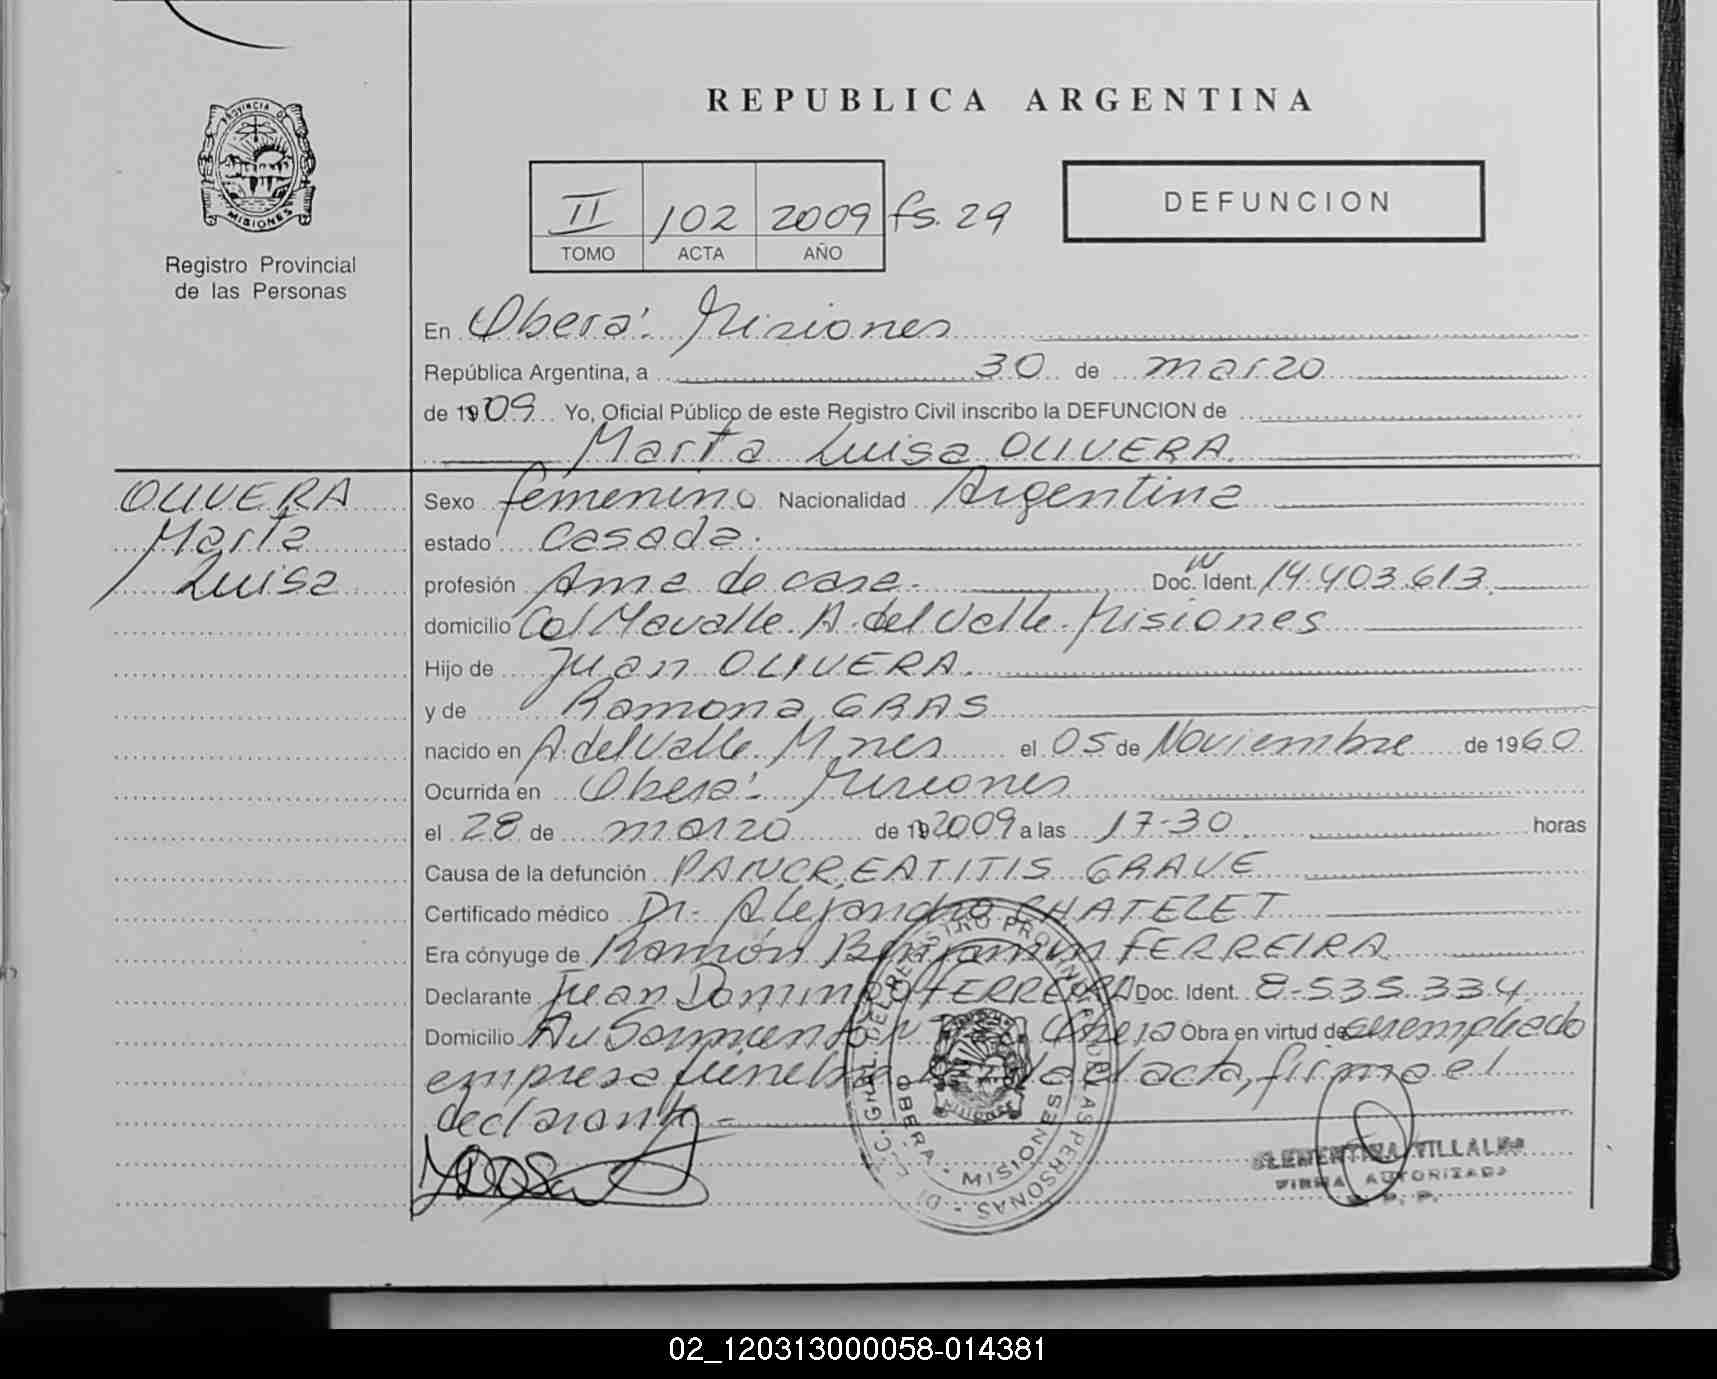 REPUBLICA ARGENTINA
PROVINCIA DE
MISIONES
Registro Provincial
de las Personas
II 102 2009 fs. 29
TOMO ACTA AÑO
DEFUNCION
En Oberá. Misiones
República Argentina, a 30 de marzo
de 1909 Yo, Oficial Público de este Registro Civil inscribo la DEFUNCION de
Marta Luisa OLIVERA
OLIVERA
Marta
Luisa
Sexo femenino Nacionalidad Argentina
estado Casada.
profesión Ama de casa. Doc. Ident. 14.403.613
domicilio Col Mavalle. A. del Valle. Misiones
Hijo de Juan OLIVERA.
y de Ramona GRAS
nacido en A. del Valle. Mnes el 05 de Noviembre de 1960
Ocurrida en Oberá. Misiones
el 28 de marzo de 192009 a las 17-30 horas
Causa de la defunción PANCREATITIS GRAVE
Certificado médico Dr. Alejandro CHATELET
Era cónyuge de Ramón Benjamín FERREIRA
Declarante Juan Domingo FERREIRA Doc. Ident. 8-535.334
Domicilio Av Sarmiento Oberá Obra en virtud de ser empleado
empresa fúnebre el acta, firma el
declarante
REGISTRO PROVINCIAL DE LAS PERSONAS
OBERA - MISIONES
CLEMENTINA VILLALBA
FIRMA AUTORIZADA
R. P. P.
02_120313000058-014381